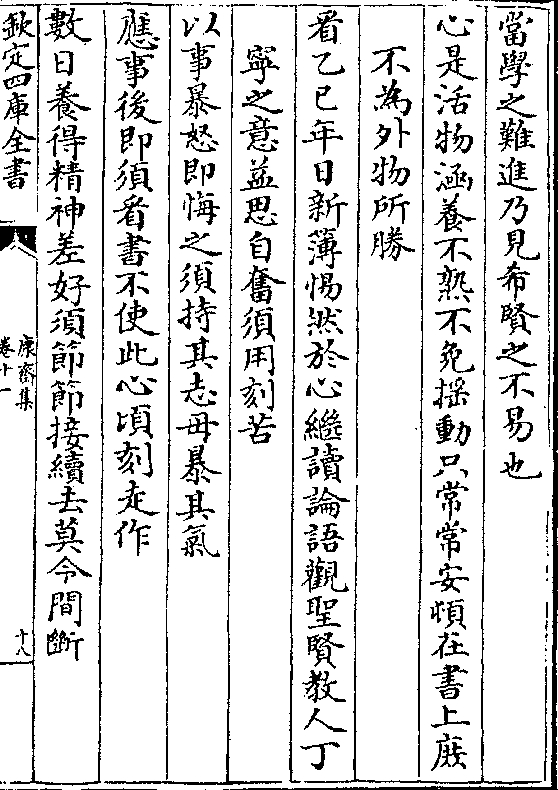 當學之難進乃見希賢之不易也
心是活物涵養不熟不免揺動只常常安頓在書上庶
不為外物所勝
看乙巳年日新簿惕然於心繼讀論語觀聖賢教人丁
寧之意益思自奮須用刻苦
以事暴怒即悔之須持其志毋暴其氣
應事後即須看書不使此心頃刻走作
數日養得精神差好須節節接續去莫令間斷
欽定四庫全書
康齋集
卷十一
十八